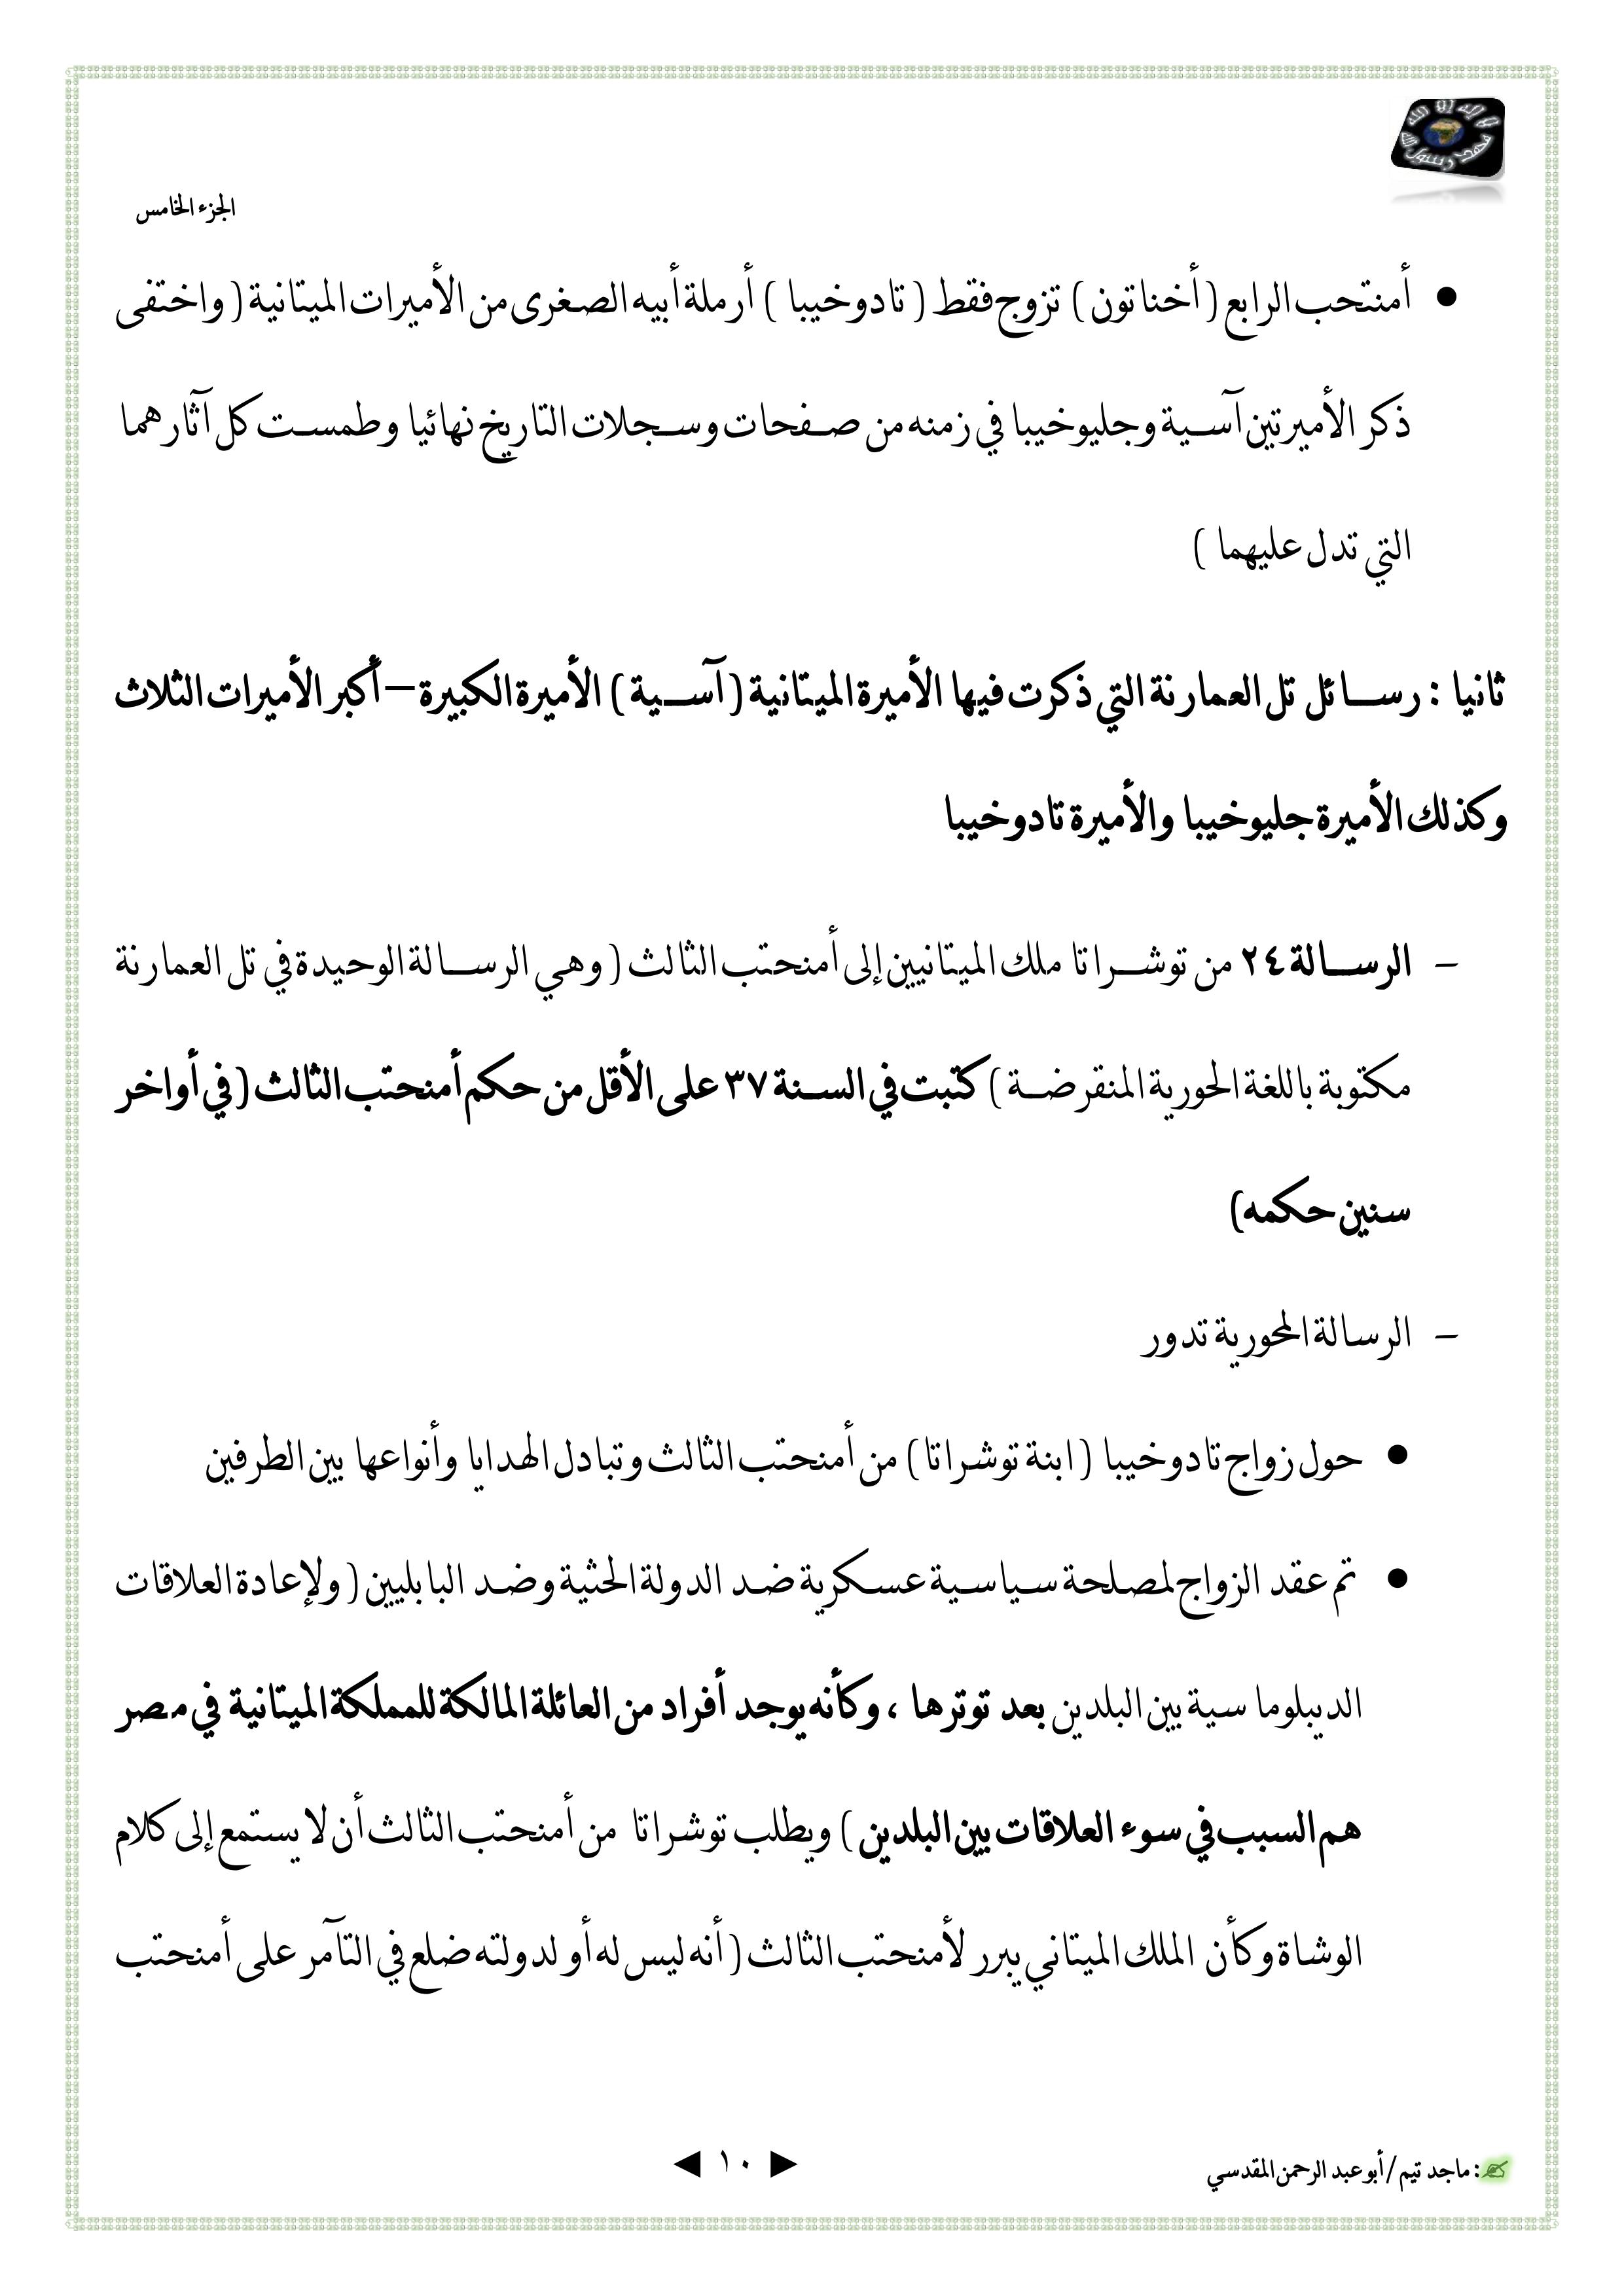 لا إله إلا الله
محمد رسول الله
الجزء الخامس
• أمنتحب الرابع ( أخناتون ) تزوج فقط ( تادوخيبا ) أرملة أبيه الصغرى من الأميرات الميتانية ( واختفى
ذكر الأميرتين آسية وجليوخيبا في زمنه من صفحات وسجلات التاريخ نهائيا وطمست كل آثارهما
التي تدل عليهما )
ثانيا : رسائل تل العمارنة التي ذكرت فيها الأميرة الميتانية ( آسية ) الأميرة الكبيرة – أكبر الأميرات الثلاث
وكذلك الأميرة جليوخيبا والأميرة تادوخيبا
– الرسالة ٢٤ من توشراتا ملك الميتانيين إلى أمنحتب الثالث ( وهي الرسالة الوحيدة في تل العمارنة
مكتوبة باللغة الحورية المنقرضة ) كتبت في السنة ٣٧ على الأقل من حكم أمنحتب الثالث ( في أواخر
سنين حكمه)
– الرسالة المحورية تدور
• حول زواج تادوخيبا ( ابنة توشراتا ) من أمنحتب الثالث وتبادل الهدايا وأنواعها بين الطرفين
• تم عقد الزواج لمصلحة سياسية عسكرية ضد الدولة الحثية وضد البابليين ( ولإعادة العلاقات
الديبلوماسية بين البلدين بعد توترها ، وكأنه يوجد أفراد من العائلة المالكة للمملكة الميتانية في مصر
هم السبب في سوء العلاقات بين البلدين ) ويطلب توشراتا من أمنحتب الثالث أن لا يستمع إلى كلام
الوشاة وكأن الملك الميتاني يبرر لأمنحتب الثالث ( أنه ليس له أو لدولته ضلع في التآمر على أمنحتب
✍: ماجد تيم / أبو عبد الرحمن المقدسي
► ١٠ ◄